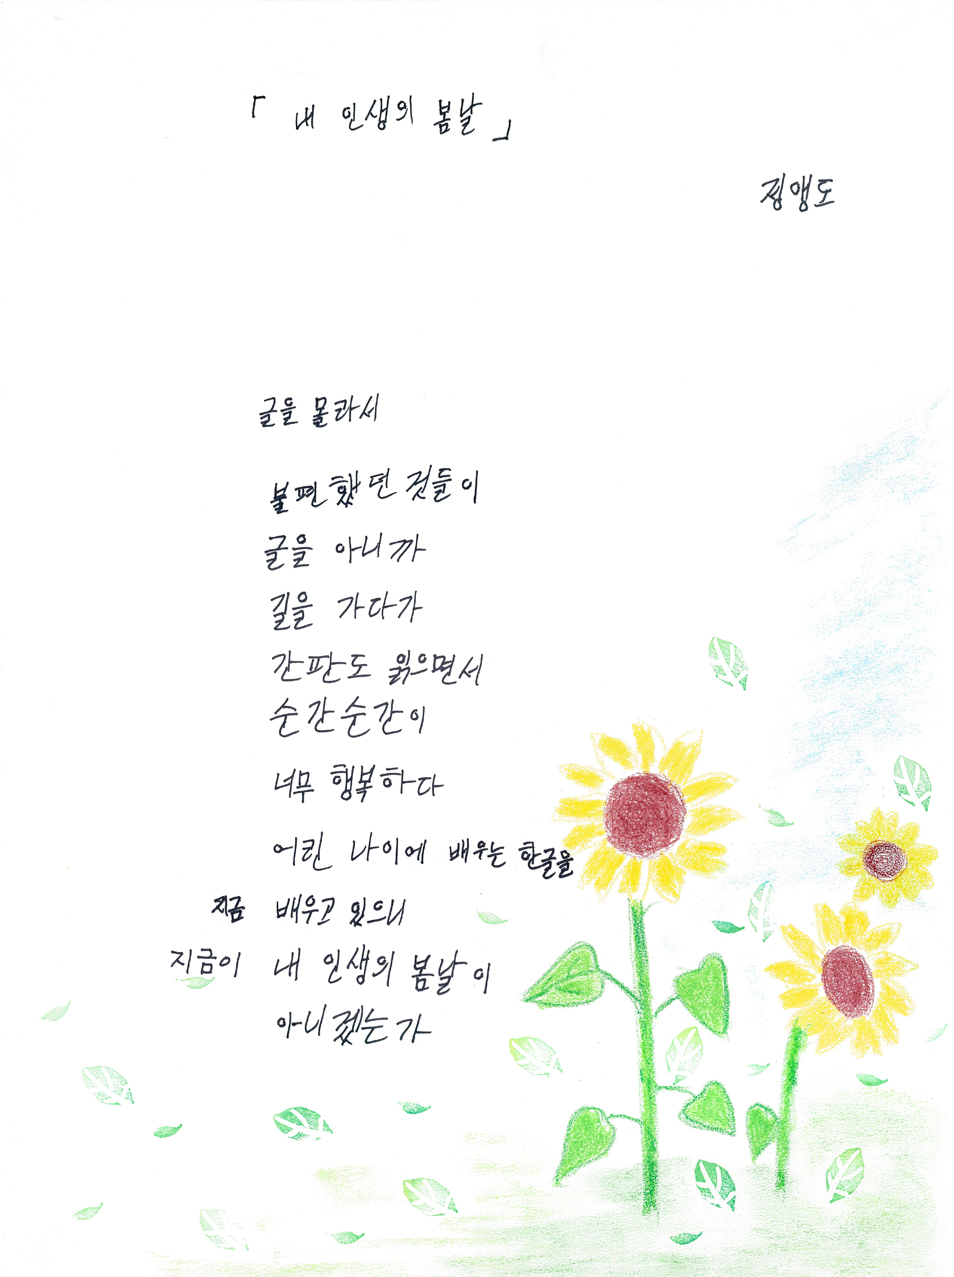 「 내 인생의 봄날 」
정맹도
글을 몰라서
불편했던 것들이
글을 아니까
길을 가다가
간판도 읽으면서
순간순간이
너무 행복하다
어린 나이에 배우는 한글을
지금 배우고 있으니
지금이 내 인생의 봄날이
아니겠는가